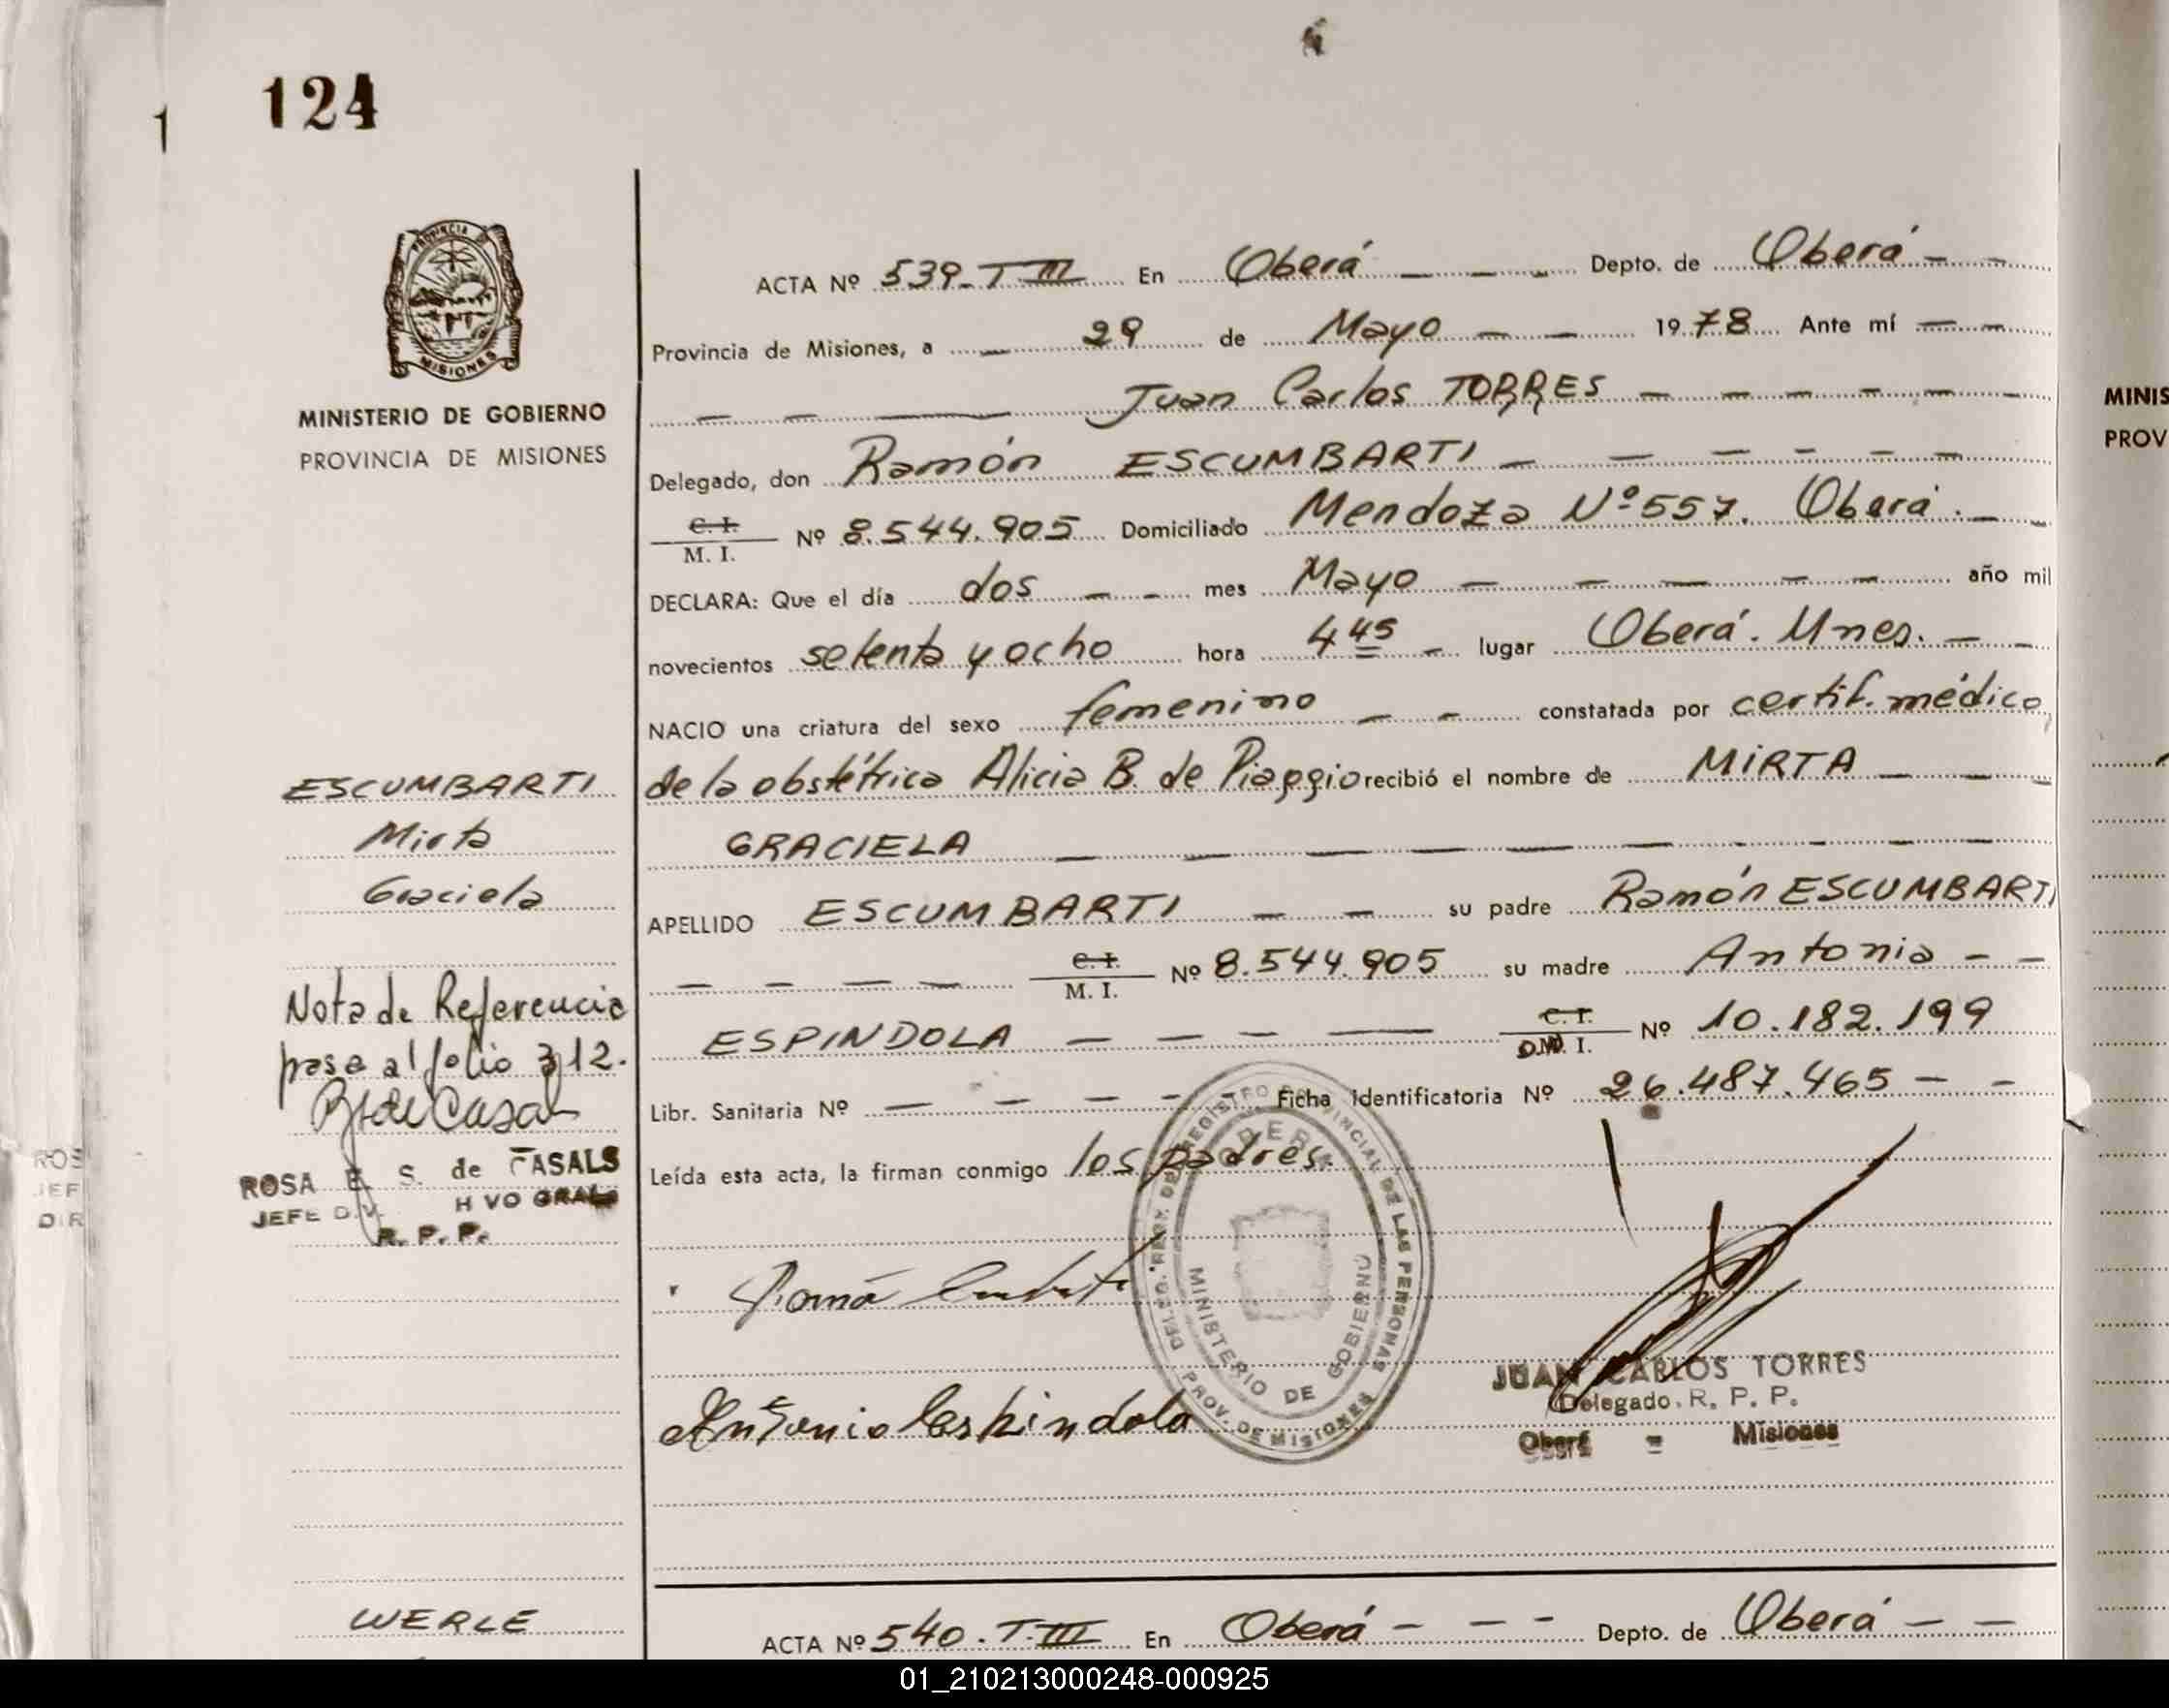 124
1
PROVINCIA
MISIONES
MINISTERIO DE GOBIERNO
PROVINCIA DE MISIONES
ACTA Nº 539-T III En Oberá Depto. de Oberá
Provincia de Misiones, a 29 de Mayo 1978 Ante mí
Juan Carlos TORRES
Delegado, don Ramón ESCUMBARTI
C. I. M. I. Nº 8.544.905 Domiciliado Mendoza Nº 557. Oberá.
DECLARA: Que el día dos mes Mayo año mil
novecientos setenta y ocho hora 4 45 lugar Oberá. Mnes.
NACIO una criatura del sexo femenino constatada por certif. médico
de la obstétrica Alicia B. de Piaggio recibió el nombre de MIRTA
GRACIELA
APELLIDO ESCUMBARTI su padre Ramón ESCUMBARTI
C. I. M. I. Nº 8.544.905 su madre Antonia
ESPINDOLA C. I. D.N. I. Nº 10.182.199
Libr. Sanitaria Nº Ficha Identificatoria Nº 26.487.465
Leída esta acta, la firman conmigo los padres.
ESCUMBARTI
Mirta
Graciela
Nota de Referencia
pasa al folio 312.
R de Casal
ROSA E. S. de CASALS
JEFE DIV. H VO GRAL
R. P. P.
Ramón
Antonia Espindola
DELEG. REGISTRO PROVINCIAL DE LAS PERSONAS
OBERA
MINISTERIO DE GOBIERNO
PROV. DE MISIONES
JUAN CARLOS TORRES
Delegado. R. P. P.
Oberá - Misiones
WERLE
ACTA Nº 540. T. III En Oberá Depto. de Oberá
MINIS
PROV
ROS
JEF
DIR
01_210213000248-000925